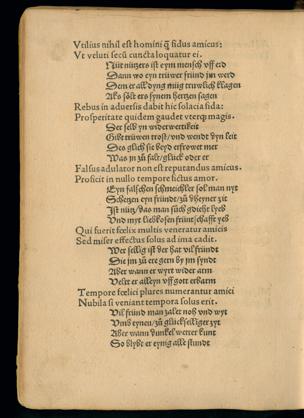 Vtilius nihil est homini q̃ fidus amicus:
Vt veluti secũ cuncta loquatur ei.
Nüt nützers ist eym mensch vff erd
Dann wo eyn trüwer fründ jm werd
Dem er all dyng müg truwlich klagen
Als söllt ers synem hertzen sagen
Rebus in aduersis dabit hic solacia fida:
Prosperitate quidem gaudet vterq; magis.
Der selb yn widerwertikeit
Gibt trüwen trost/vnd wendt syn leit
Des glich sie beyd erfrowet mer
Was jn zů falt/glück oder er
Falsus adulator non est reputandus amicus.
Proficit in nullo tempore fictus amor.
Eyn falschen schmeichler sol man nyt
Schetzen eyn fründt/zů dheyner zit
Ist nütz/das man süch gdicht lyeb
Vnd myt liebkosen früntschafft yeb
Qui fuerit fœlix multis veneratur amicis
Sed miser effectus solus ad ima cadit.
Wer sellig ist der hat vil fründ
Die jm zů ere gern by jm syndt
Aber wann er wyrt wider arm
Velt er alleyn vff gott erbarm
Tempore fœlici plures numerantur amici
Nubila si veniant tempora solus erit.
Vil fründ man zalet noh vnd wyt
Vmb eynen/zů glückselliger zyt
Aber wann dunkel wetter kunt
So blybt er eynig alle stundt